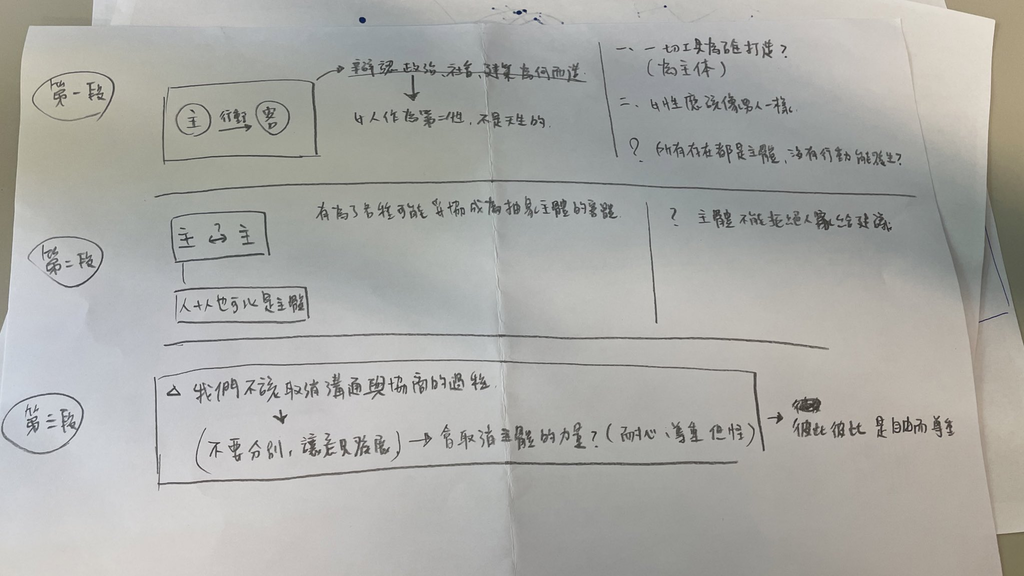 第一段
主 行動 客
辯認政治、社會、建築為何而造
女人作為第二性,不是天生的.
一、一切工具為誰打造?
(為主体)
二、女性應該像男人一樣.
? 所有存在都是主體,沒有行動能發生?
第二段
主 ↔ 主
人+人也可以是主體
有為了 可能妥協成為抽象主體的客體
? 主體不能拒絕人家給建議
第三段
△ 我們不該取消溝通與協商的過程.
(不要分別,讓意見發展) → 會取消主體的力量?(耐心、尊重 他性)
→ 彼此彼此是自由而尊重